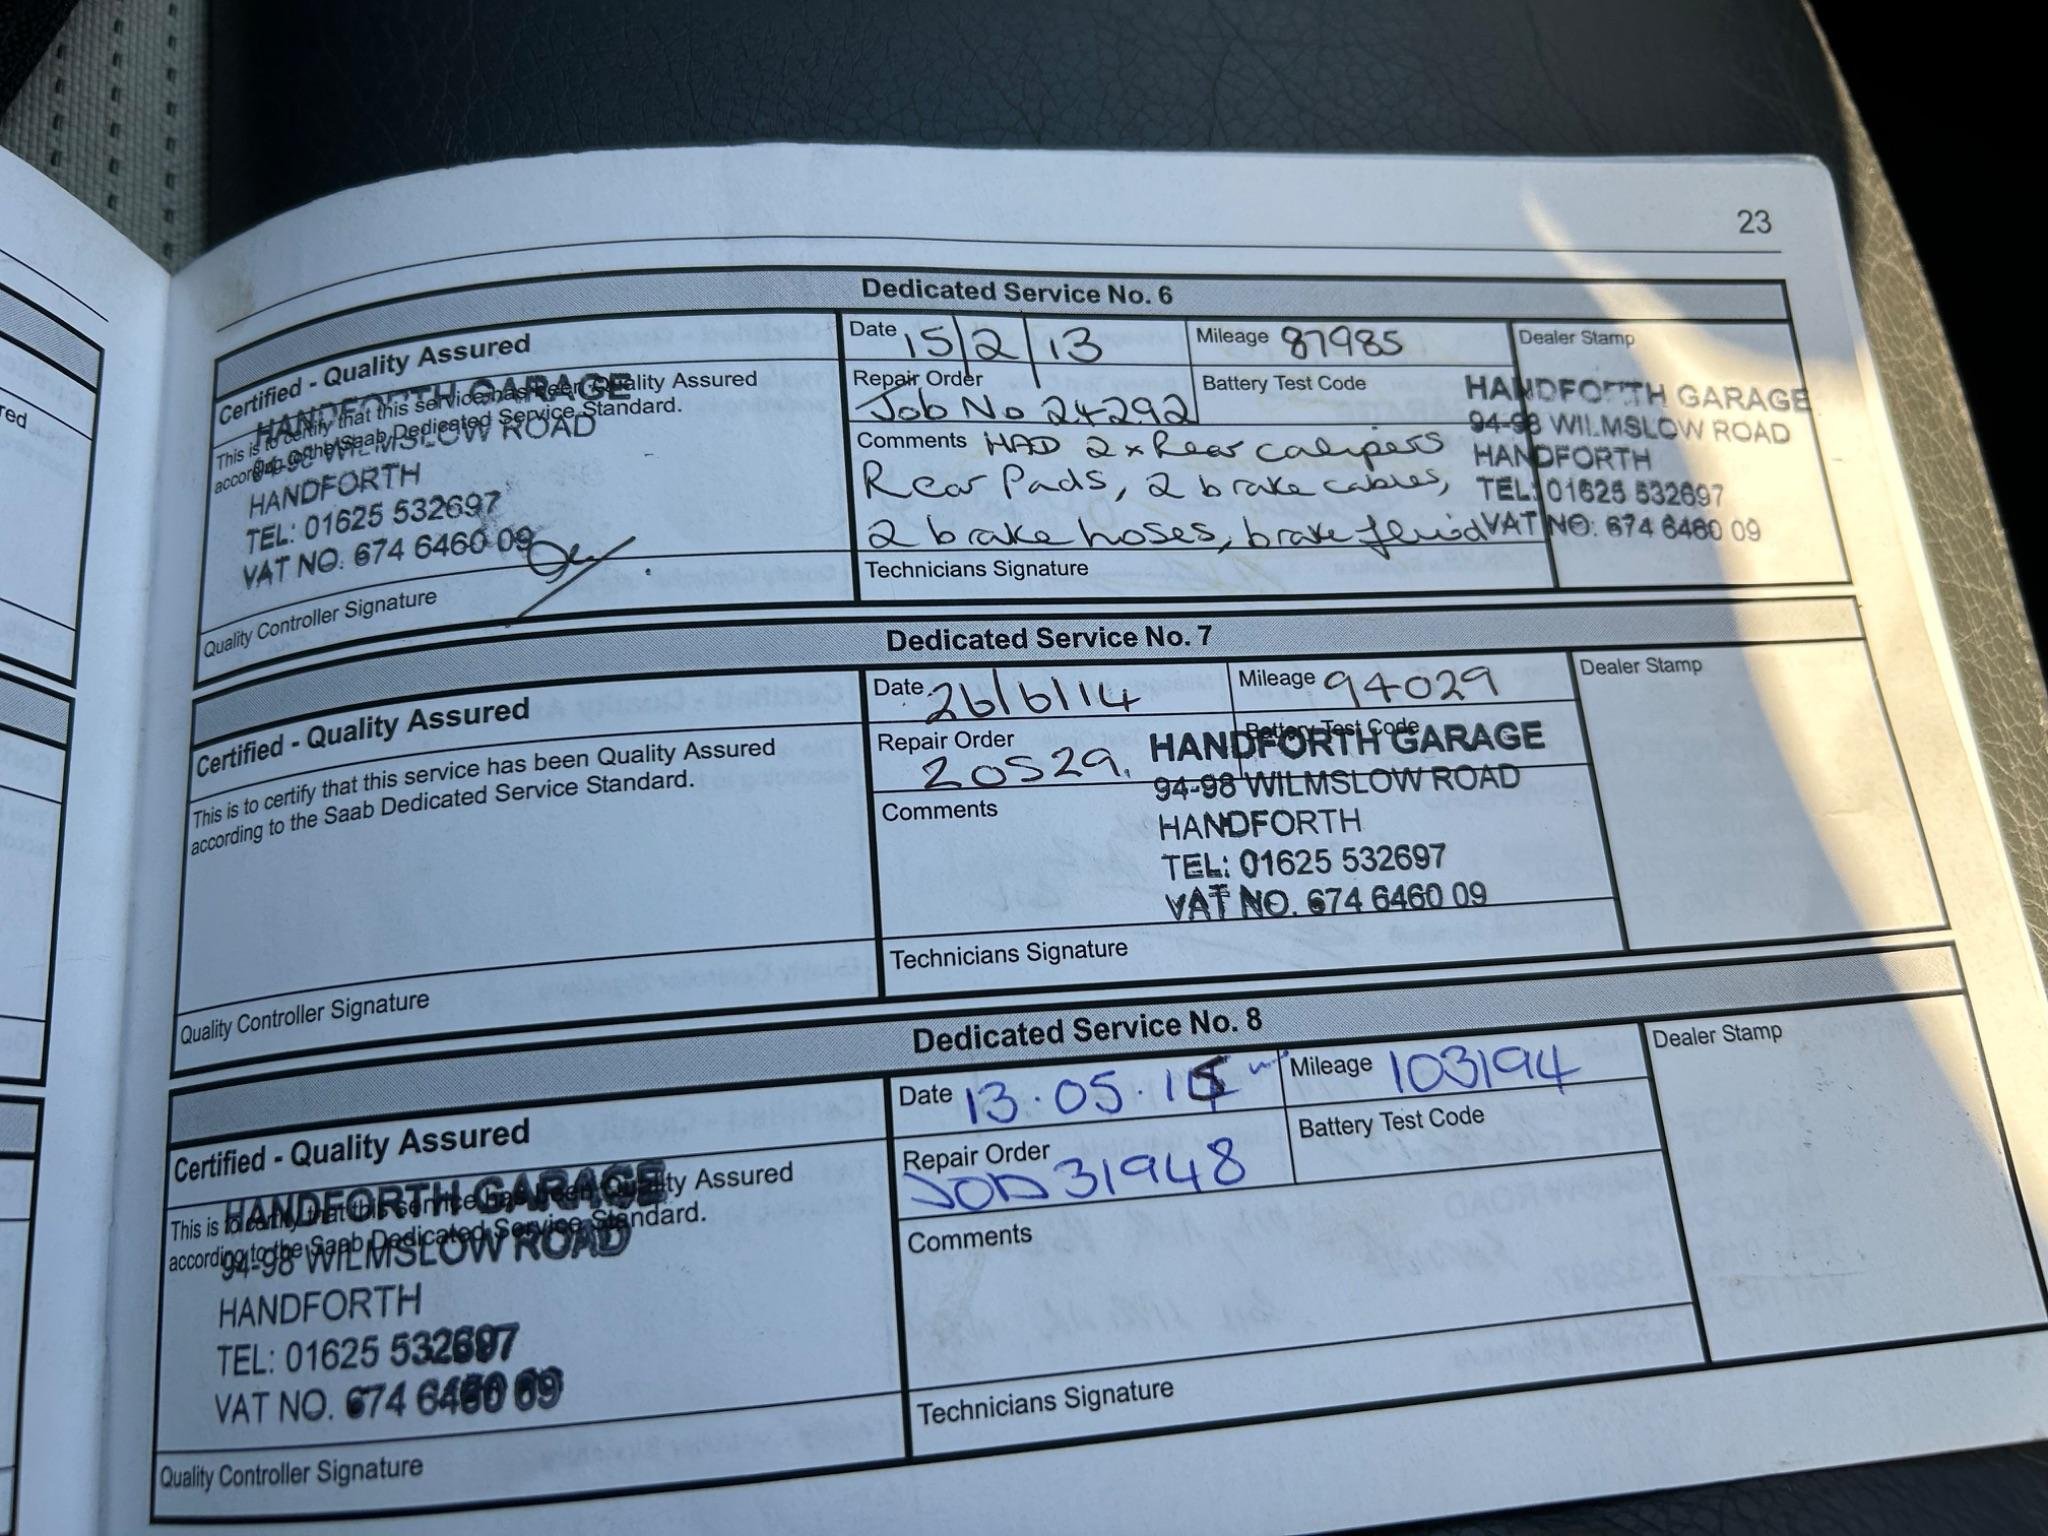 23
Dedicated Service No. 6
Certified - Quality Assured
This is to certify that this service has been Quality Assured
according to the Saab Dedicated Service Standard.
HANDFORTH GARAGE
94-98 WILMSLOW ROAD
HANDFORTH
TEL: 01625 532697
VAT NO. 674 6460 09
Quality Controller Signature
Date 15/2/13
Mileage 87985
Repair Order
Job No 24292
Battery Test Code
Comments HAD 2 x Rear calipers
Rear Pads, 2 brake cables,
2 brake hoses, brake fluid
Technicians Signature
Dealer Stamp
HANDFORTH GARAGE
94-98 WILMSLOW ROAD
HANDFORTH
TEL: 01625 532697
VAT NO: 674 6460 09
Dedicated Service No. 7
Certified - Quality Assured
This is to certify that this service has been Quality Assured
according to the Saab Dedicated Service Standard.
Quality Controller Signature
Date 26/6/14
Mileage 94029
Repair Order
20529.
Battery Test Code
Comments
HANDFORTH GARAGE
94-98 WILMSLOW ROAD
HANDFORTH
TEL: 01625 532697
VAT NO. 674 6460 09
Technicians Signature
Dealer Stamp
Dedicated Service No. 8
Certified - Quality Assured
This is to certify that this service has been Quality Assured
according to the Saab Dedicated Service Standard.
HANDFORTH GARAGE
94-98 WILMSLOW ROAD
HANDFORTH
TEL: 01625 532697
VAT NO. 674 6460 09
Quality Controller Signature
Date 13.05.15
Mileage 103194
Repair Order
JOB 31948
Battery Test Code
Comments
Technicians Signature
Dealer Stamp
red